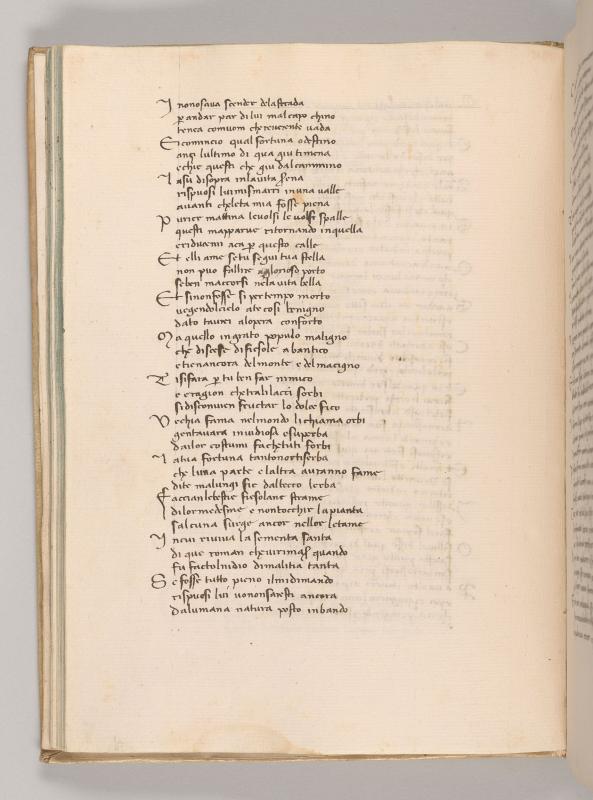 I nonosava scender delastrada
p andar par di lui mal capo chino
tenea comuom che reverente vada
E comincio qual fortuna odestino
anzi lultimo di qua giu timena
echie questi che giu dal cammino
L asu disopra inlavita serena
rispuosi lui mismarri in una valle
avanti cheleta mia fosse piena
P ur ier mattina levolsi le volsi spalle
questi mapparve ritornando inquella
eriducemi aca p questo calle
Et elli ame se tu segui tua stella
non puo fallire aglorioso porto
seben maccorsi nela vita bella
Et sinonfosse si per tempo morto
vegendolcielo ate cosi benigno
dato tavrei alopera conforto
M a quello ingrato populo maligno
che discese difiesole abantico
etienancora delmonte e delmacigno
T isifara p tu ben far nimico
e eragion chetralilacci sorbi
sidisconvien fructar lo dolce fico
V echia fama nelmondo lichiama orbi
gentavara invidiosa esuperba
dailor costumi fachetuti forbi
L atua fortuna tantonortiserba
che luna parte e laltra avranno fame
dite malungi fie dalbecco lerba
F accianlebestie fiesolane strame
dilormedesme e nontocchir lapianta
salcuna surge ancor nellor letame
I ncui riviva la sementa santa
di que roman chevirimas quando
fu factolnidio dimalitia tanta
S e fosse tutto pieno ilmidimando
rispuosi lui vononsaresti ancora
dalumana natura posto inbando